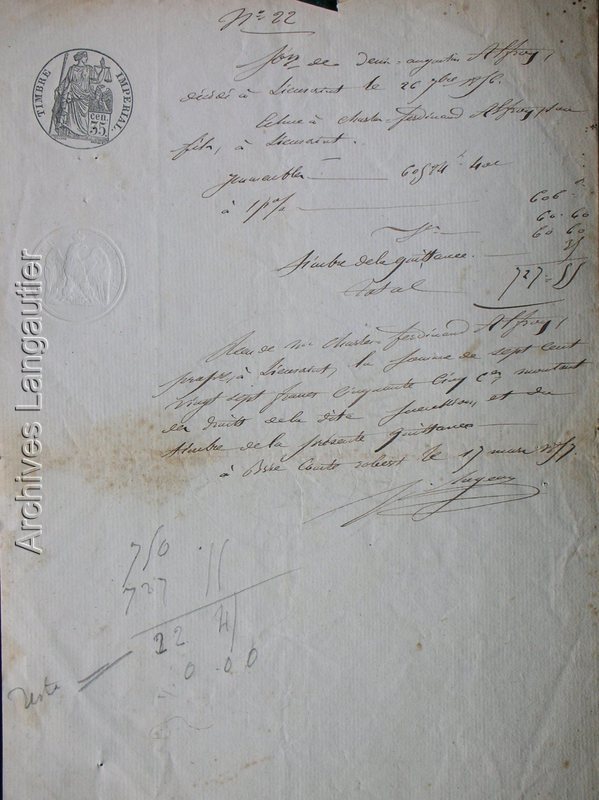 N° 22
TIMBRE IMPERIAL
cen. 35
Son de Denis-augustin Affroy,
décédé à Lieusaint le 26 9bre 1856.
Echue à Charles-Ferdinand Affroy, son
fils, à Lieusaint.
Immeubles 60594 f
à 1 p% 606
60.60
60 60
timbre de la quittance 35
Total 727=55
Reçu de Mr Charles Ferdinand Affroy,
propre, à Lieusaint, la Somme de sept cent
vingt sept francs Cinquante Cinq Ces montant
des droits de la dite Succession, et du
timbre de la présente quittance
à Brie Comte robert le 17 mars 1857.
750
727 55
22 45
0.00
reste
Archives Langautier